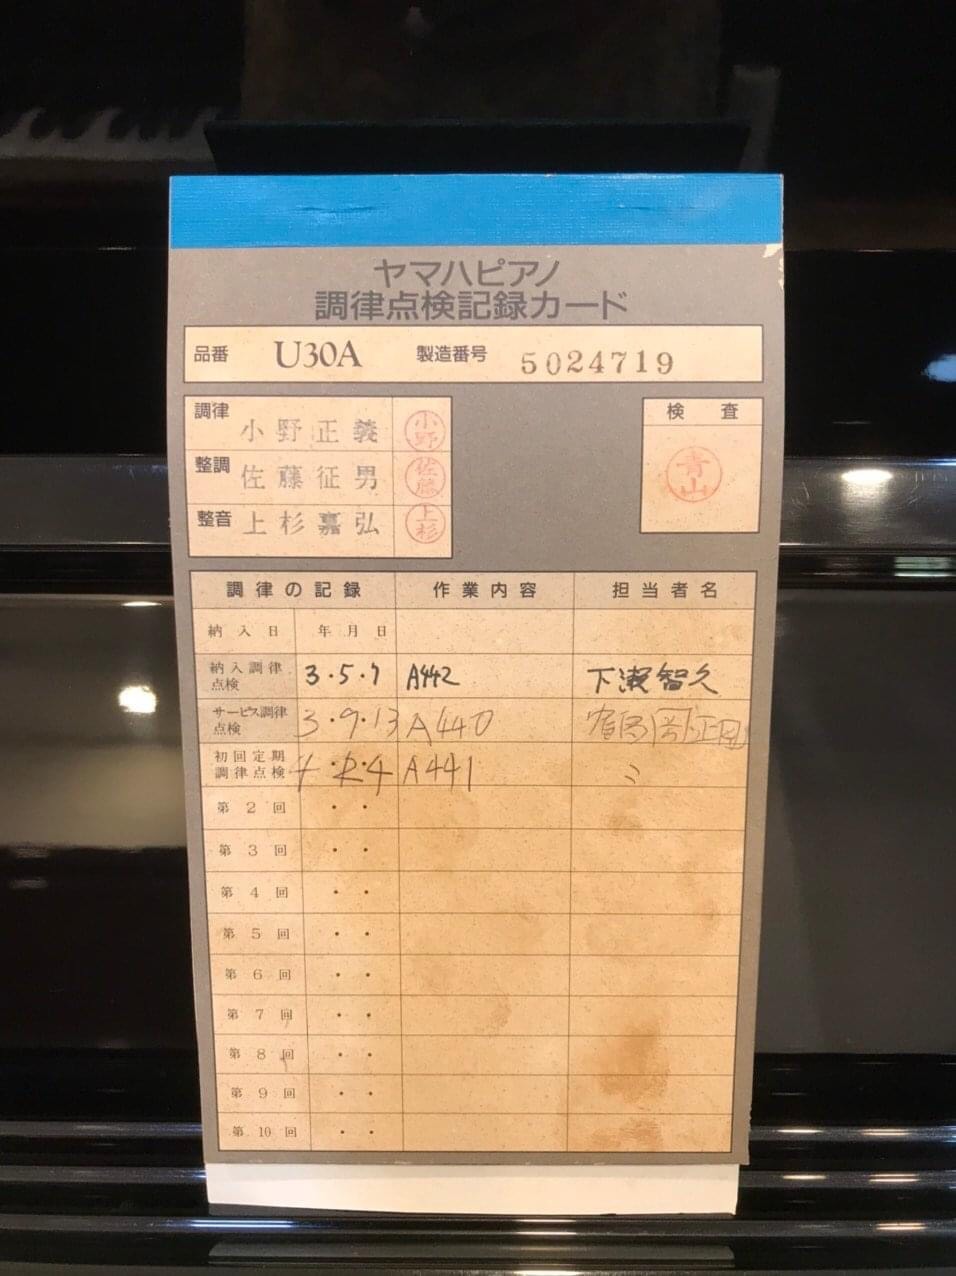 ヤマハピアノ
調律点検記録カード
品番 U30A 製造番号 5024719
調律 小野正義 小野
整調 佐藤征男 佐藤
整音 上杉嘉弘 上杉
検査
青山
調律の記録 作業内容 担当者名
納入日 年月日
納入調律点検 3・5・7 A442 下瀬智久
サービス調律点検 3・9・13 A440
初回定期調律点検 A441 〃
第2回 ・・
第3回 ・・
第4回 ・・
第5回 ・・
第6回 ・・
第7回 ・・
第8回 ・・
第9回 ・・
第10回 ・・